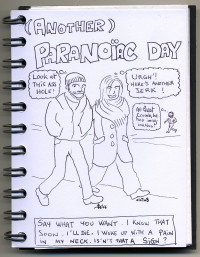 (ANOTHER)
PARANOÏAC DAY
LOOK AT
THIS ASS
HOLE!
URGH!
HERE'S ANOTHER
JERK!
SAY WHAT YOU WANT. I KNOW THAT
SOON, I'LL DIE. I WOKE UP WITH A PAIN
IN MY NECK. IS'N'T THAT A SIGN?